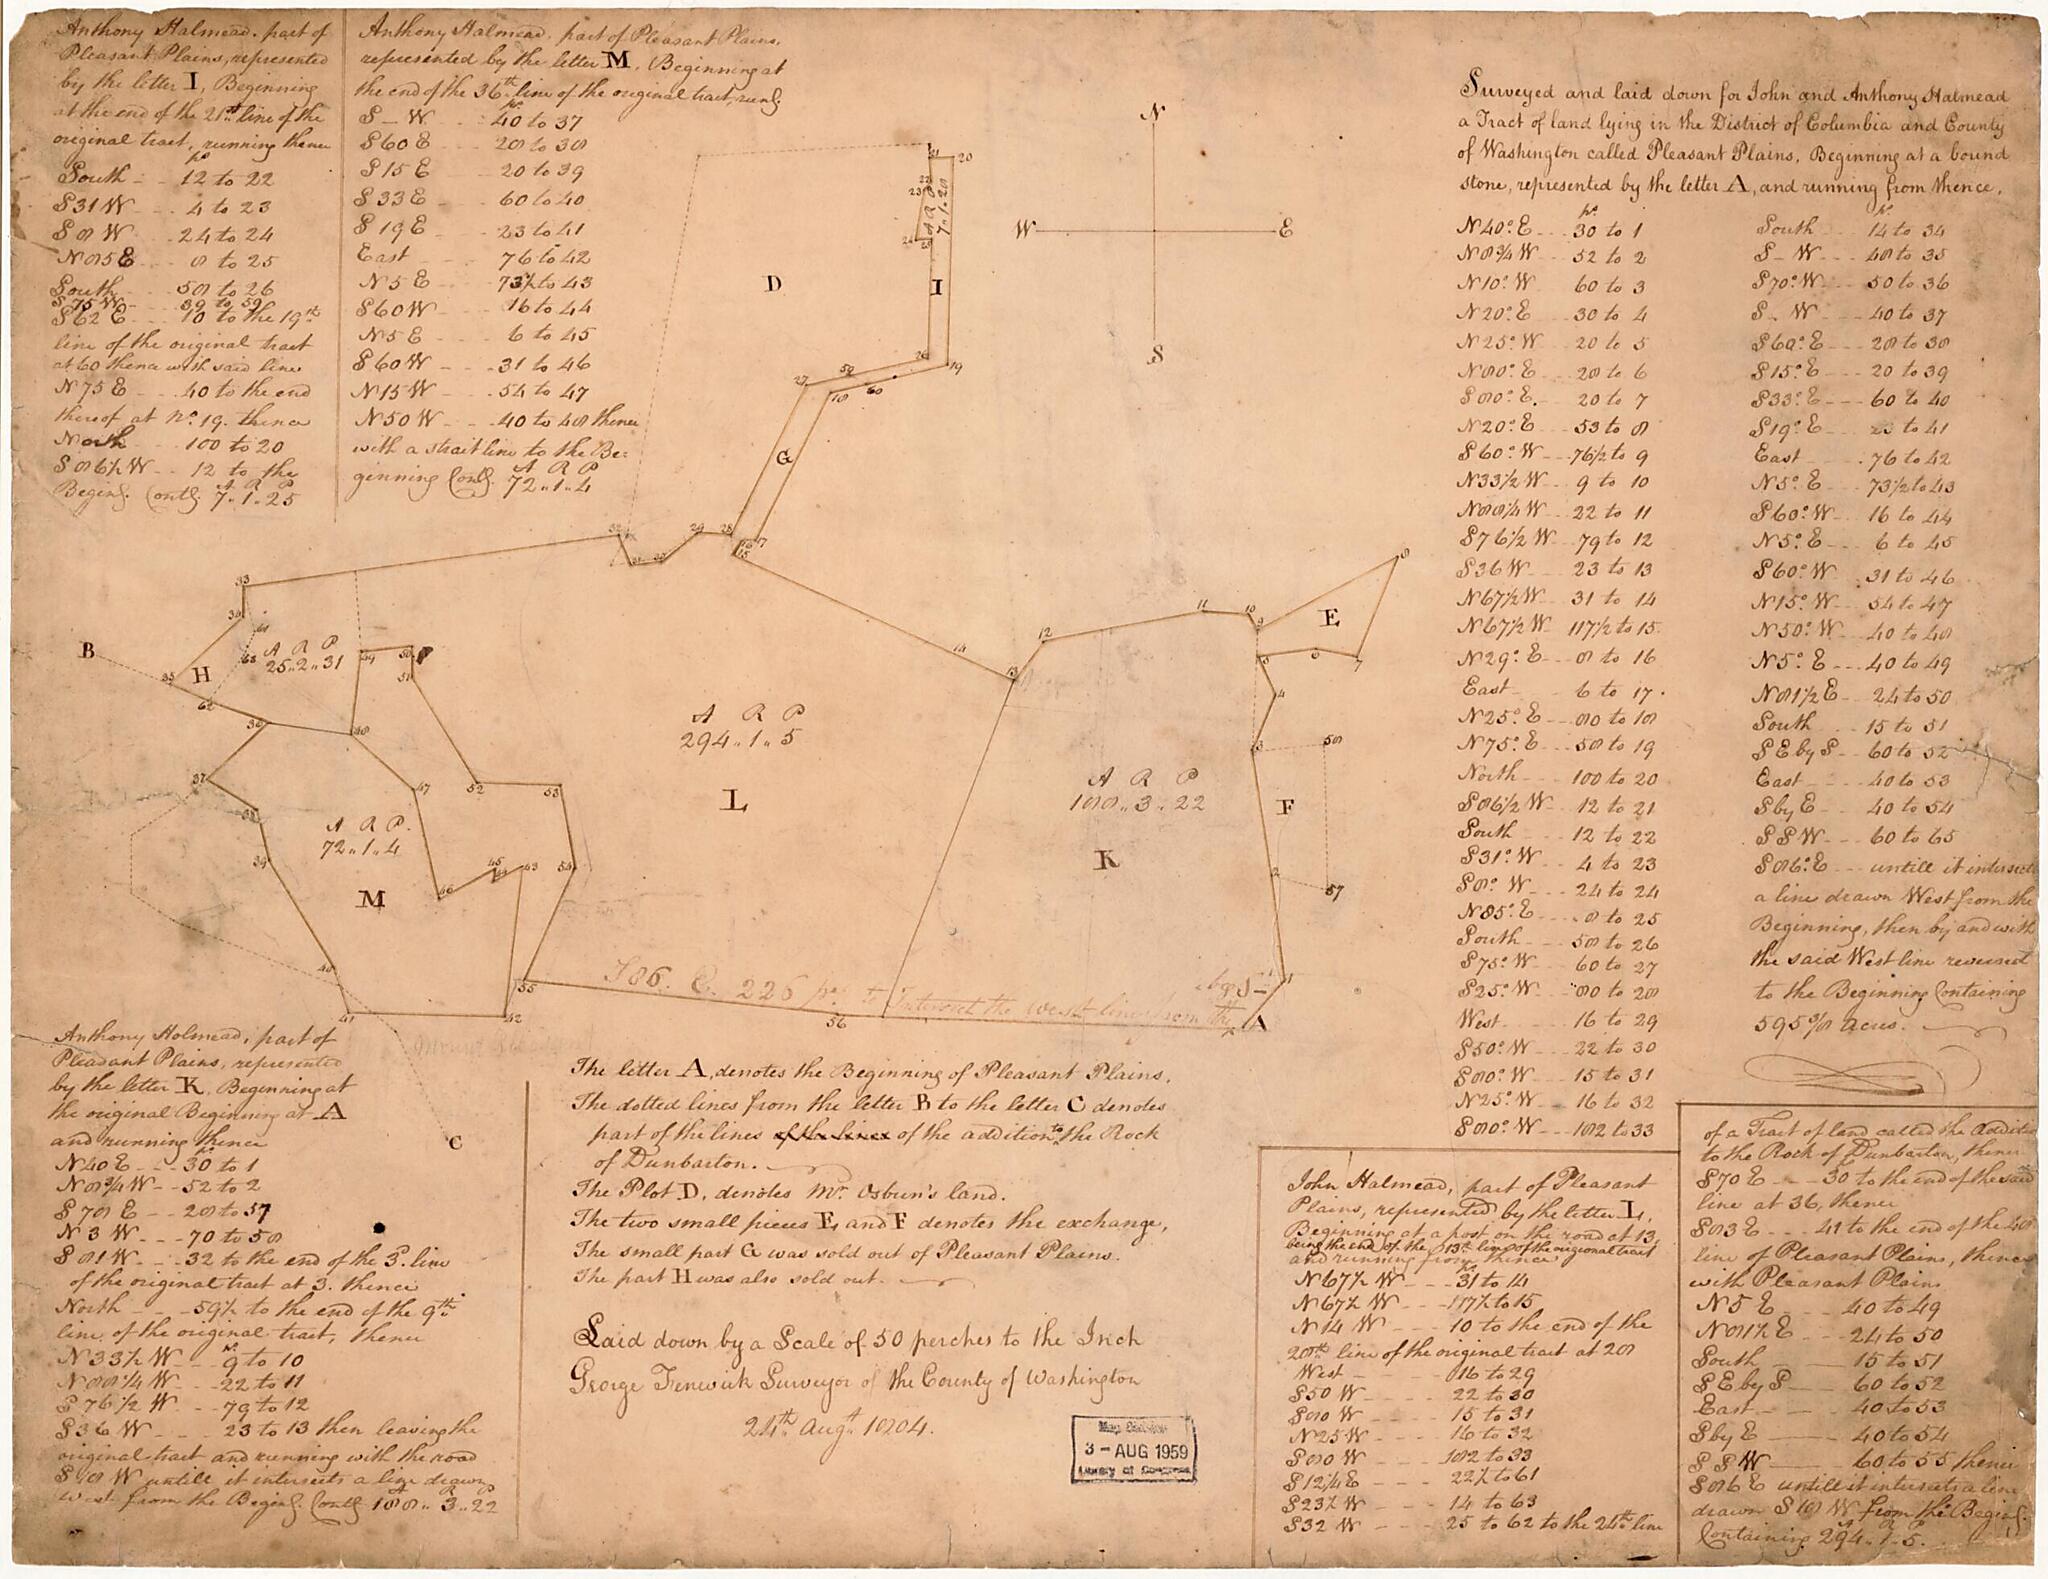 Anthony Halmead, part of
Pleasant Plains, represented
by the letter I, Beginning
at the end of the 21st line of the
original tract, running thence
ps
South - 12 to 22
S 31 W - 4 to 23
S 8 W - 24 to 24
N 85 E - 8 to 25
South - 58 to 26
S 75 W - 39 to 59
S 62 E - 10 to the 19th
line of the original tract
at 60 thence with said line
N 75 E - 40 to the end
thereof at No. 19. thence
North - 100 to 20
S 86½ W - 12 to the
A R P
Begin\g. Contg. 7..1..25
Anthony Halmead, part of Pleasant Plains,
represented by the letter M, Beginning at
the end of the 36th line of the original tract, rung.
ps
S - W - 40 to 37
S 60 E - 28 to 38
S 15 E - 20 to 39
S 33 E - 60 to 40
S 19 E - 23 to 41
East - 76 to 42
N 5 E - 73½ to 43
S 60 W - 16 to 44
N 5 E - 6 to 45
S 60 W - 31 to 46
N 15 W - 54 to 47
N 50 W - 40 to 48 thence
with a strait line to the Be:
A R P
ginning Contg. 72..1..4
N
W E
S
Surveyed and laid down for John and Anthony Halmead
a Tract of land lying in the District of Columbia and County
of Washington called Pleasant Plains, Beginning at a bound
stone, represented by the letter A, and running from thence,
ps
N 40° E - 30 to 1
N 8¾ W - 52 to 2
N 10° W 60 to 3
N 20° E - 30 to 4
N 25° W - 20 to 5
N 80° E - 28 to 6
S 80° E - 20 to 7
N 20° E - 53 to 8
S 60° W - 76½ to 9
N 33½ W - 9 to 10
N 88¼ W - 22 to 11
S 76½ W - 79 to 12
S 36 W - 23 to 13
N 67½ W - 31 to 14
N 67½ W - 117½ to 15
N 29° E - 8 to 16
East - 6 to 17
N 25° E - 80 to 18
N 75° E - 58 to 19
North - 100 to 20
S 86½ W - 12 to 21
South - 12 to 22
S 31° W - 4 to 23
S 8° W - 24 to 24
N 85° E - 8 to 25
South - 58 to 26
S 75° W - 60 to 27
S 25° W - 80 to 28
West - 16 to 29
S 50° W - 22 to 30
S 80° W - 15 to 31
N 25° W - 16 to 32
S 80° W - 182 to 33
ps
South - 14 to 34
S - W - 48 to 35
S 70° W - 50 to 36
S - W - 40 to 37
S 60° E - 28 to 38
S 15° E - 20 to 39
S 33° E - 60 to 40
S 19° E - 23 to 41
East - 76 to 42
N 5° E - 73½ to 43
S 60° W - 16 to 44
N 5° E - 6 to 45
S 60° W - 31 to 46
N 15° W - 54 to 47
N 50° W - 40 to 48
N 5° E - 40 to 49
N 81½ E - 24 to 50
South - 15 to 51
S E by S - 60 to 52
East - 40 to 53
S by E - 40 to 54
S S W - 60 to 55
S 86° E - untill it intersects
a line drawn West from the
Beginning, then by and with
the said West line reversed
to the Beginning Containing
595 3/8 acres.
21 20
22
23
A R P
7..1..28
24 25
D I
26 19
27 59
18 60
G
32 29 28 16 17
31 30 15
33
34
61
B 63
A R P
25..2..31
H
35
62
36
49 50
51
48
14 13 12 11 10 9 8
E
5 6 7
4
3 58
A R P
294..1..5
L
A R P
188..3..22
F
K
2 57
37
38
39
A R P.
72..1..4
M
47 52 53
46 45 44 43 54
40
41 42
55
56
1
A
S 86. E. 226 ps. to Intersect the West line from the
begg
C
Anthony Holmead, part of
Pleasant Plains, represented
by the letter K, Beginning at
the original Beginning at A
and running thence
ps
N 40 E - 30 to 1
N 8¾ W - 52 to 2
S 78 E - 28 to 57
N 3 W - 70 to 58
S 81 W - 32 to the end of the 3. line
of the original tract at 3. thence
North - 59½ to the end of the 9th
line of the original tract, thence
ps
N 33½ W - 9 to 10
N 88¼ W - 22 to 11
S 76½ W - 79 to 12
S 36 W - 23 to 13 then leaving the
original tract and running with the road
S 18 W untill it intersects a line drawn
A R P
west from the Begin\g. Contg 188..3..22
The letter A, denotes the Beginning of Pleasant Plains.
The dotted lines from the letter B to the letter C denotes
part of the lines of the lines of the addition to the Rock
of Dunbarton.
The Plot D, denotes Mr. Osburn's land.
The two small pieces E, and F denotes the exchange,
The small part G was sold out of Pleasant Plains.
The part H was also sold out.
Laid down by a Scale of 50 perches to the Inch
George Fenwick Surveyor of the County of Washington
24th Augt 1804.
Map Division
3 - AUG 1959
Library of Congress
John Halmead, part of Pleasant
Plains, represented by the letter L,
Beginning at a post on the road at 13,
being the end of the 13th line of the original tract
and running from thence
ps
N 67½ W - 31 to 14
N 67½ W - 117½ to 15
N 14 W - 10 to the end of the
28th line of the original tract at 28
West - 16 to 29
S 50 W - 22 to 30
S 80 W - 15 to 31
N 25 W - 16 to 32
S 80 W - 182 to 33
S 12¼ E - 22½ to 61
S 23½ W - 14 to 63
S 32 W - 25 to 62 to the 24th line
of a Tract of land called the Additi
to the Rock of Dunbarton, thence
S 70 E - 30 to the end of the said
line at 36, thence
S 83 E - 41 to the end of the 48
line of Pleasant Plains, thence
with Pleasant Plains
N 5 E - 40 to 49
N 81½ E - 24 to 50
South - 15 to 51
S E by S - 60 to 52
East - 40 to 53
S by E - 40 to 54
S S W - 60 to 55 thence
S 86 E untill it intersects a line
drawn S 18 W from the Begin\g.
A R P
Containing 294..1..5.